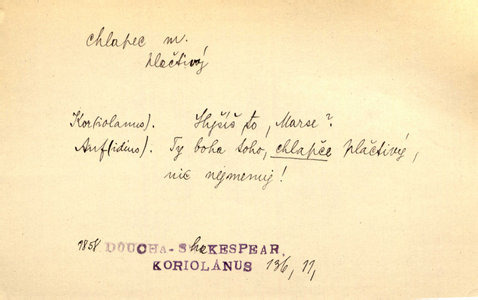 chlapec m.
plačtivý
Kor(iolanus). Slyšíš to, Marse?
Auf(idius). Ty boha toho, chlapče plačtivý,
nic nejmenuj!
1858 DOUCHA-SHAKESPEAR,
KORIOLÁNUS 136, 11,